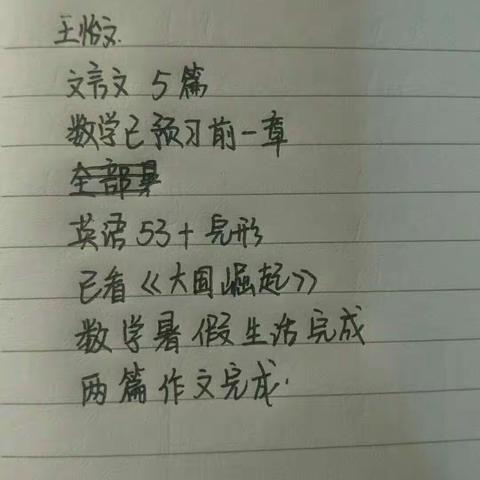 王怡文.
文言文 5篇
数学已预习前一章
英语 53+完形
已看《大国崛起》
数学暑假生活完成
两篇作文完成.